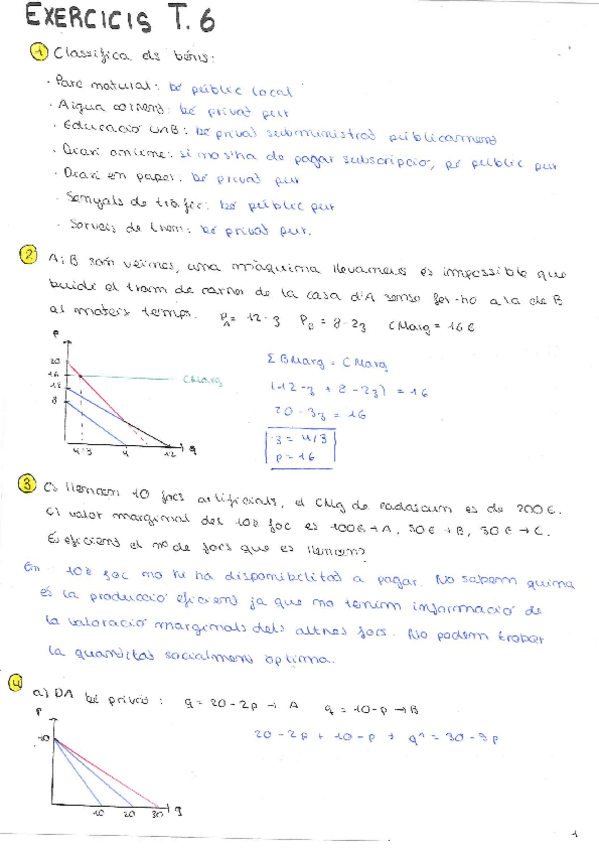 EXERCICIS T. 6
1 Classifica els béns:
· Parc natural: bé públic local
· Aigua corrent: bé privat pur
· Educació UAB: bé privat subministrat públicament
· Diari online: si no s'ha de pagar subscripció, bé públic pur
· Diari en paper: bé privat pur
· Senyals de tràfic: bé públic pur
· Serveis de tren: bé privat pur.
2 A i B són veïns, una màquina llevaneus és impossible que
buidi el tram de carrer de la casa d'A sense fer-ho a la de B
al mateix temps. PA = 12-z PB = 8-2z CMarg = 16€
P
20
16
12
8
CMarg
4/3 4 12 q
Σ BMarg = CMarg
(12-z + 8-2z) = 16
20-3z = 16
z = 4/3
p = 16
3 Es llencen 10 focs artificials, el CMg de cadascun es de 200€.
El valor marginal del 10è foc és 100€→A, 50€→B, 30€→C.
És eficient el nº de focs que es llencen?
En 10è foc no hi ha disponibilitat a pagar. No sabem quina
és la producció eficient ja que no tenim informació de
la valoració marginals dels altres focs. No podem trobar
la quantitat socialment òptima.
4 a) DA bé privat: q = 20-2p → A q = 10-p → B
20-2p + 10-p → = 30-3p
P
10
10 20 30 q
1